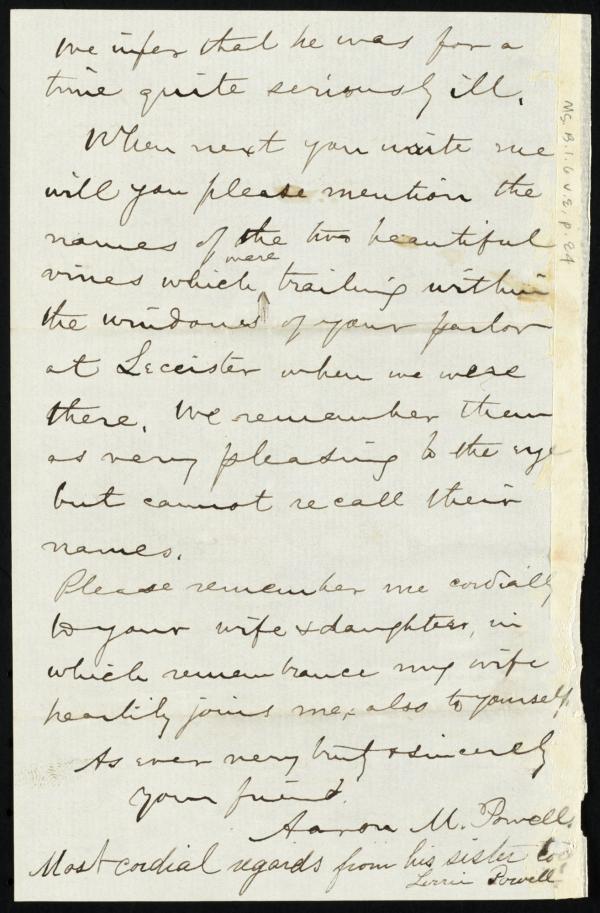 We infer that he was for a
time quite seriously ill.
When next you write me
will you please mention the
names of the two beautiful
vines which were trailing within
the windows of your parlor
at Leceister when we were
there. We remember them
as very pleasing to the eye
but cannot recall their
names.
Please remember me cordially
to your wife & daughters, in
which remembrance my wife
heartily joins me, also to yourself.
As ever very truly & sincerely
your friend.
Aaron M. Powell.
Most cordial regards from his sister too
Powell
Ms. B. 1. 6 v. 2, p. 24